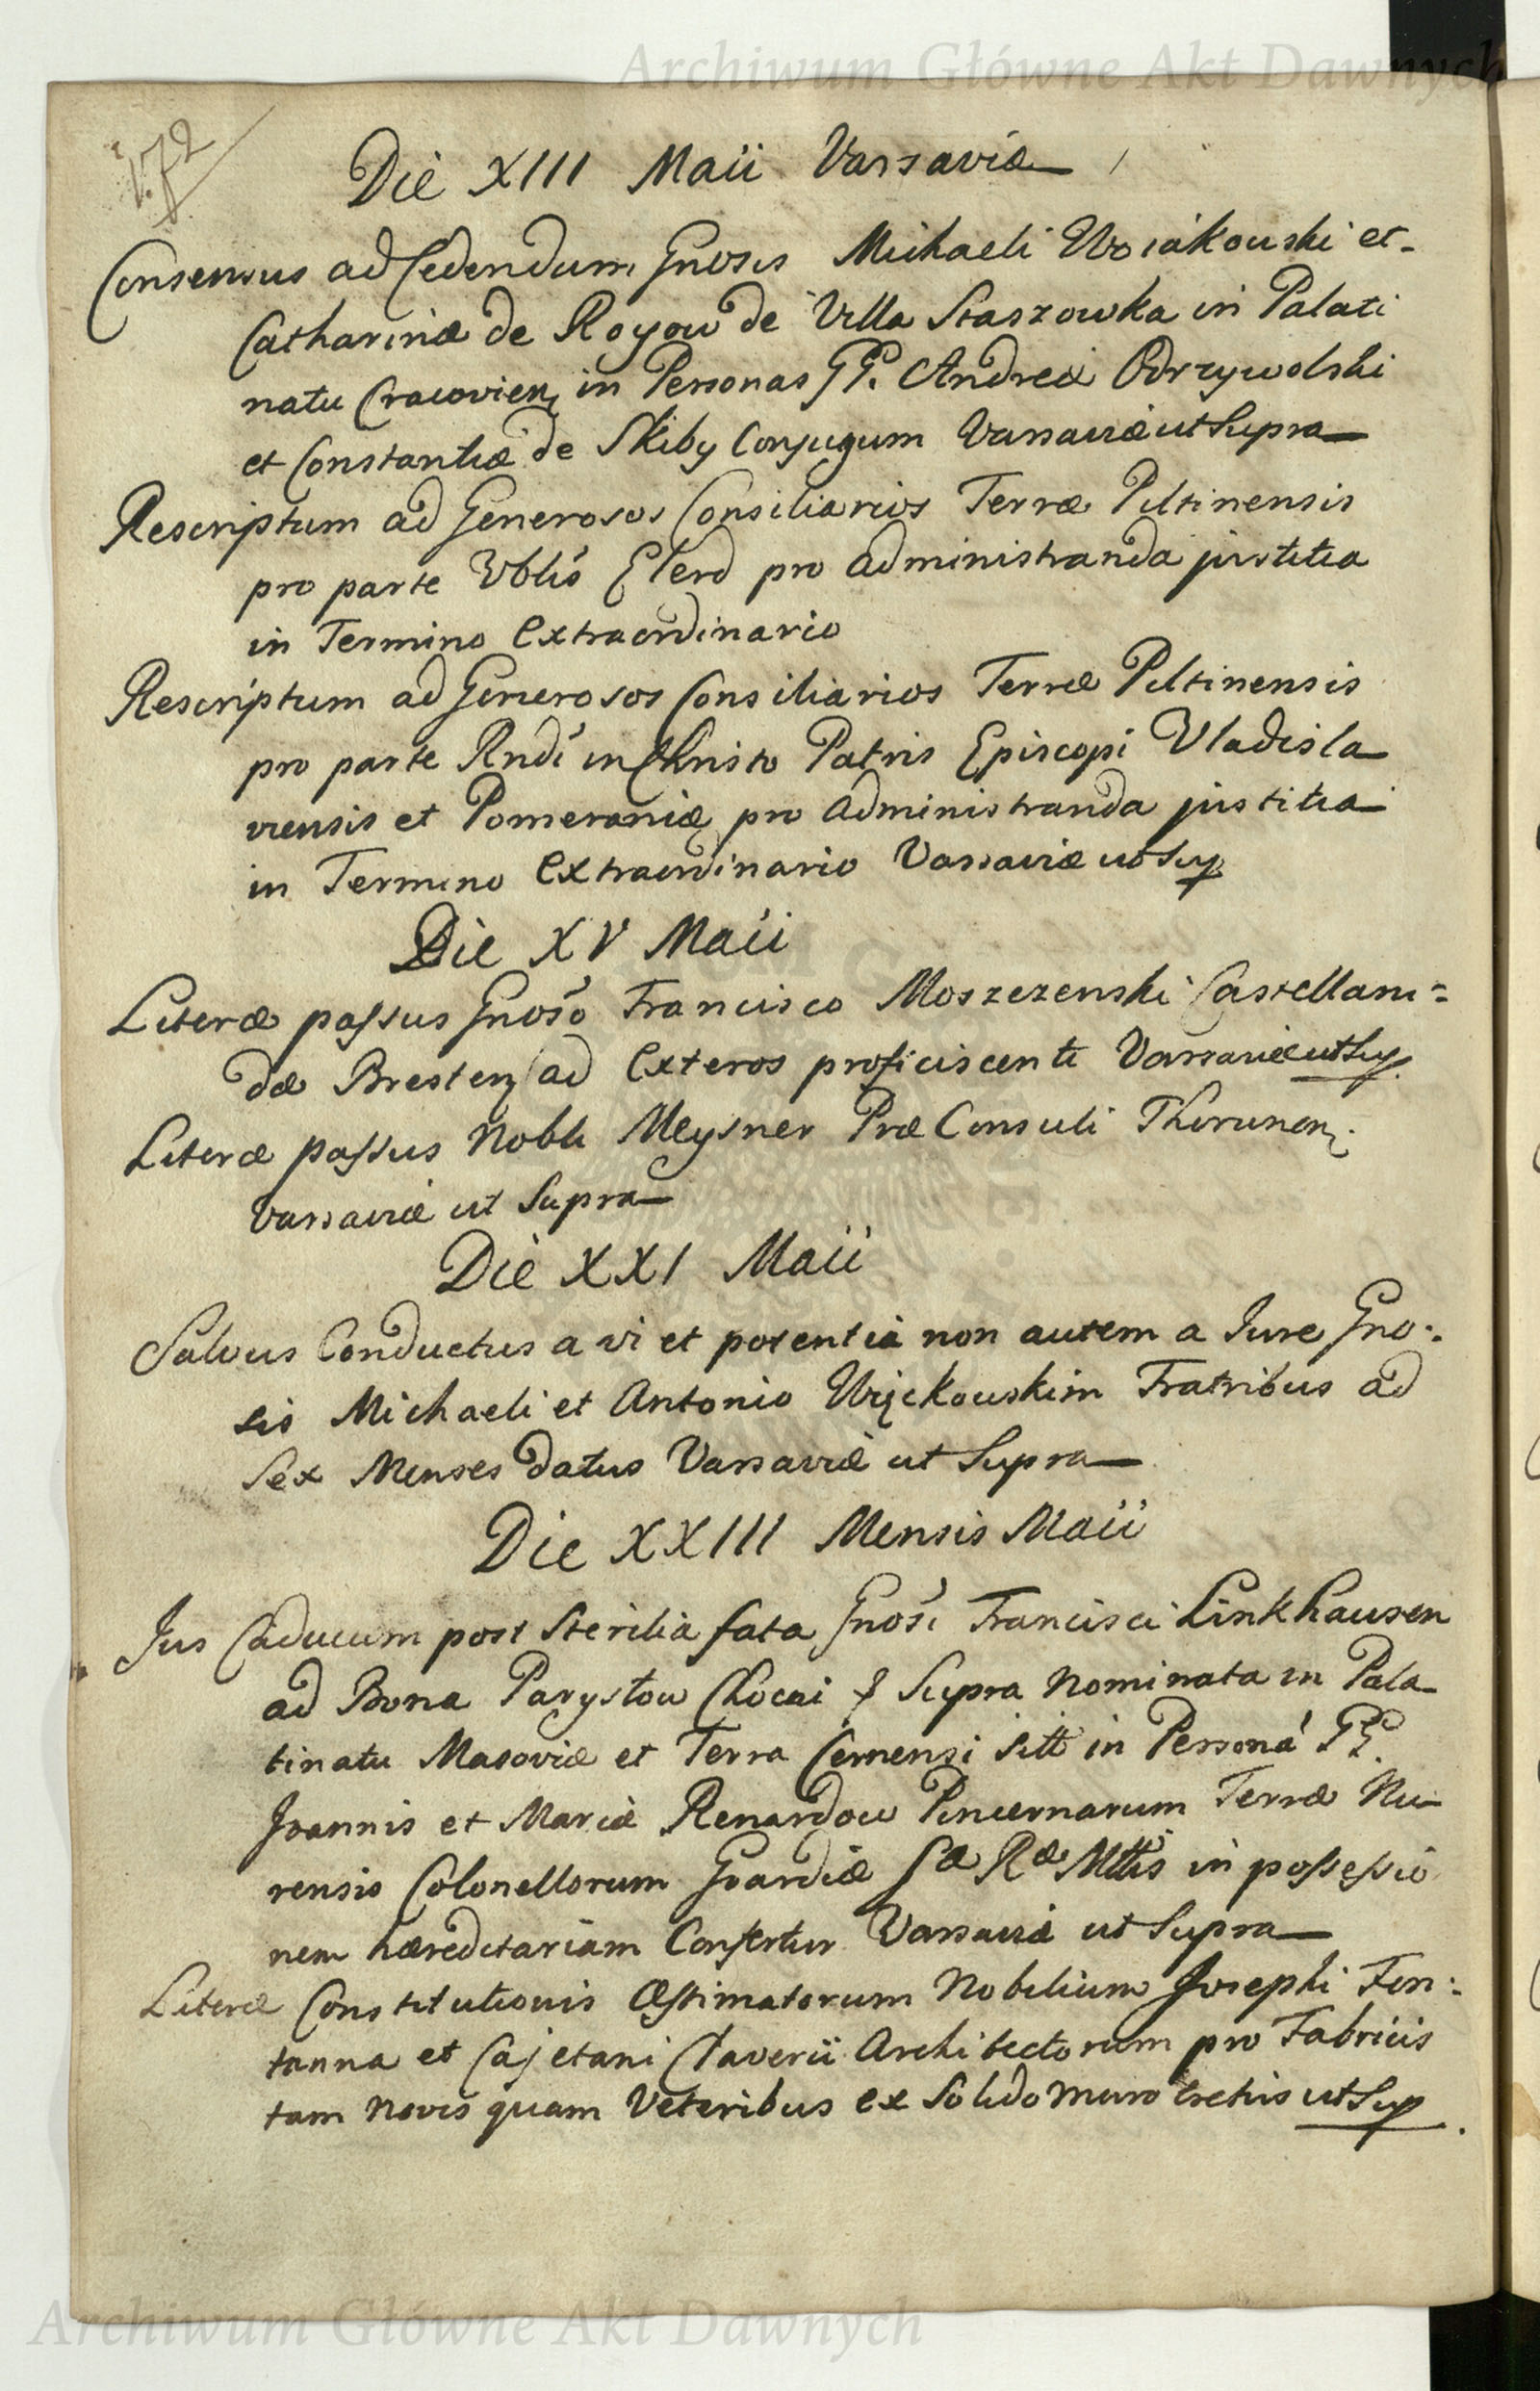 Archiwum Główne Akt Dawnych
Die XIII Maii Varsaviæ
Consensus ad Cedendum Gnosis Michaeli Woiakowski et
Catharinæ de Royow de Villa Staszowka in Palati
natu Cracovien in Personas GG. Andreæ Odrzywolski
et Constantiæ de Skiby Conjugum Varsaviæ ut Supra
Rescriptum ad Generosos Consiliarios Terræ Piltinensis
pro parte Nblis Elerd pro administranda justitia
in Termino Extraordinario
Rescriptum ad Generosos Consiliarios Terræ Piltinensis
pro parte Rndi in Christo Patris Episcopi Vladisla
viensis et Pomeraniæ pro administranda justitia
in Termino Extraordinario Varsaviæ ut Sup
Die XV Maii
Literæ passus Gnoso Francisco Moszczenski Castellani=
dæ Bresten ad Exteros proficiscenti Varsaviæ ut Sup.
Literæ passus Nobli Meysner Præ Consuli Thorunen.
Varsaviæ ut Supra
Die XXI Maii
Salvus Conductus a vi et potentia non autem a Jure Gno:
sis Michaeli et Antonio Fratribus ad
Sex Menses datus Varsaviæ ut Supra
Die XXIII Mensis Maii
Jus Caducum post Sterilia fata Gnosi Francisci Linkhausen
ad Bona Parystow Chocai & Supra Nominata in Pala
tinatu Masoviæ et Terra Cernensi sitt in Persona GG.
Joannis et Mariæ Renardow Pincernarum Terræ Nu
rensis Colonellorum Gvardiæ Sæ Ræ Mttis in possessio
nem hæreditariam Confertur Varsaviæ ut Supra
Literæ Constitutionis Æstimatorum Nobilium Josephi Fon:
tanna et Cajetani Chaverii Architectorum pro Fabricis
tam Novis quam Veteribus ex Solido muro Erectis ut Sup.
Archiwum Główne Akt Dawnych